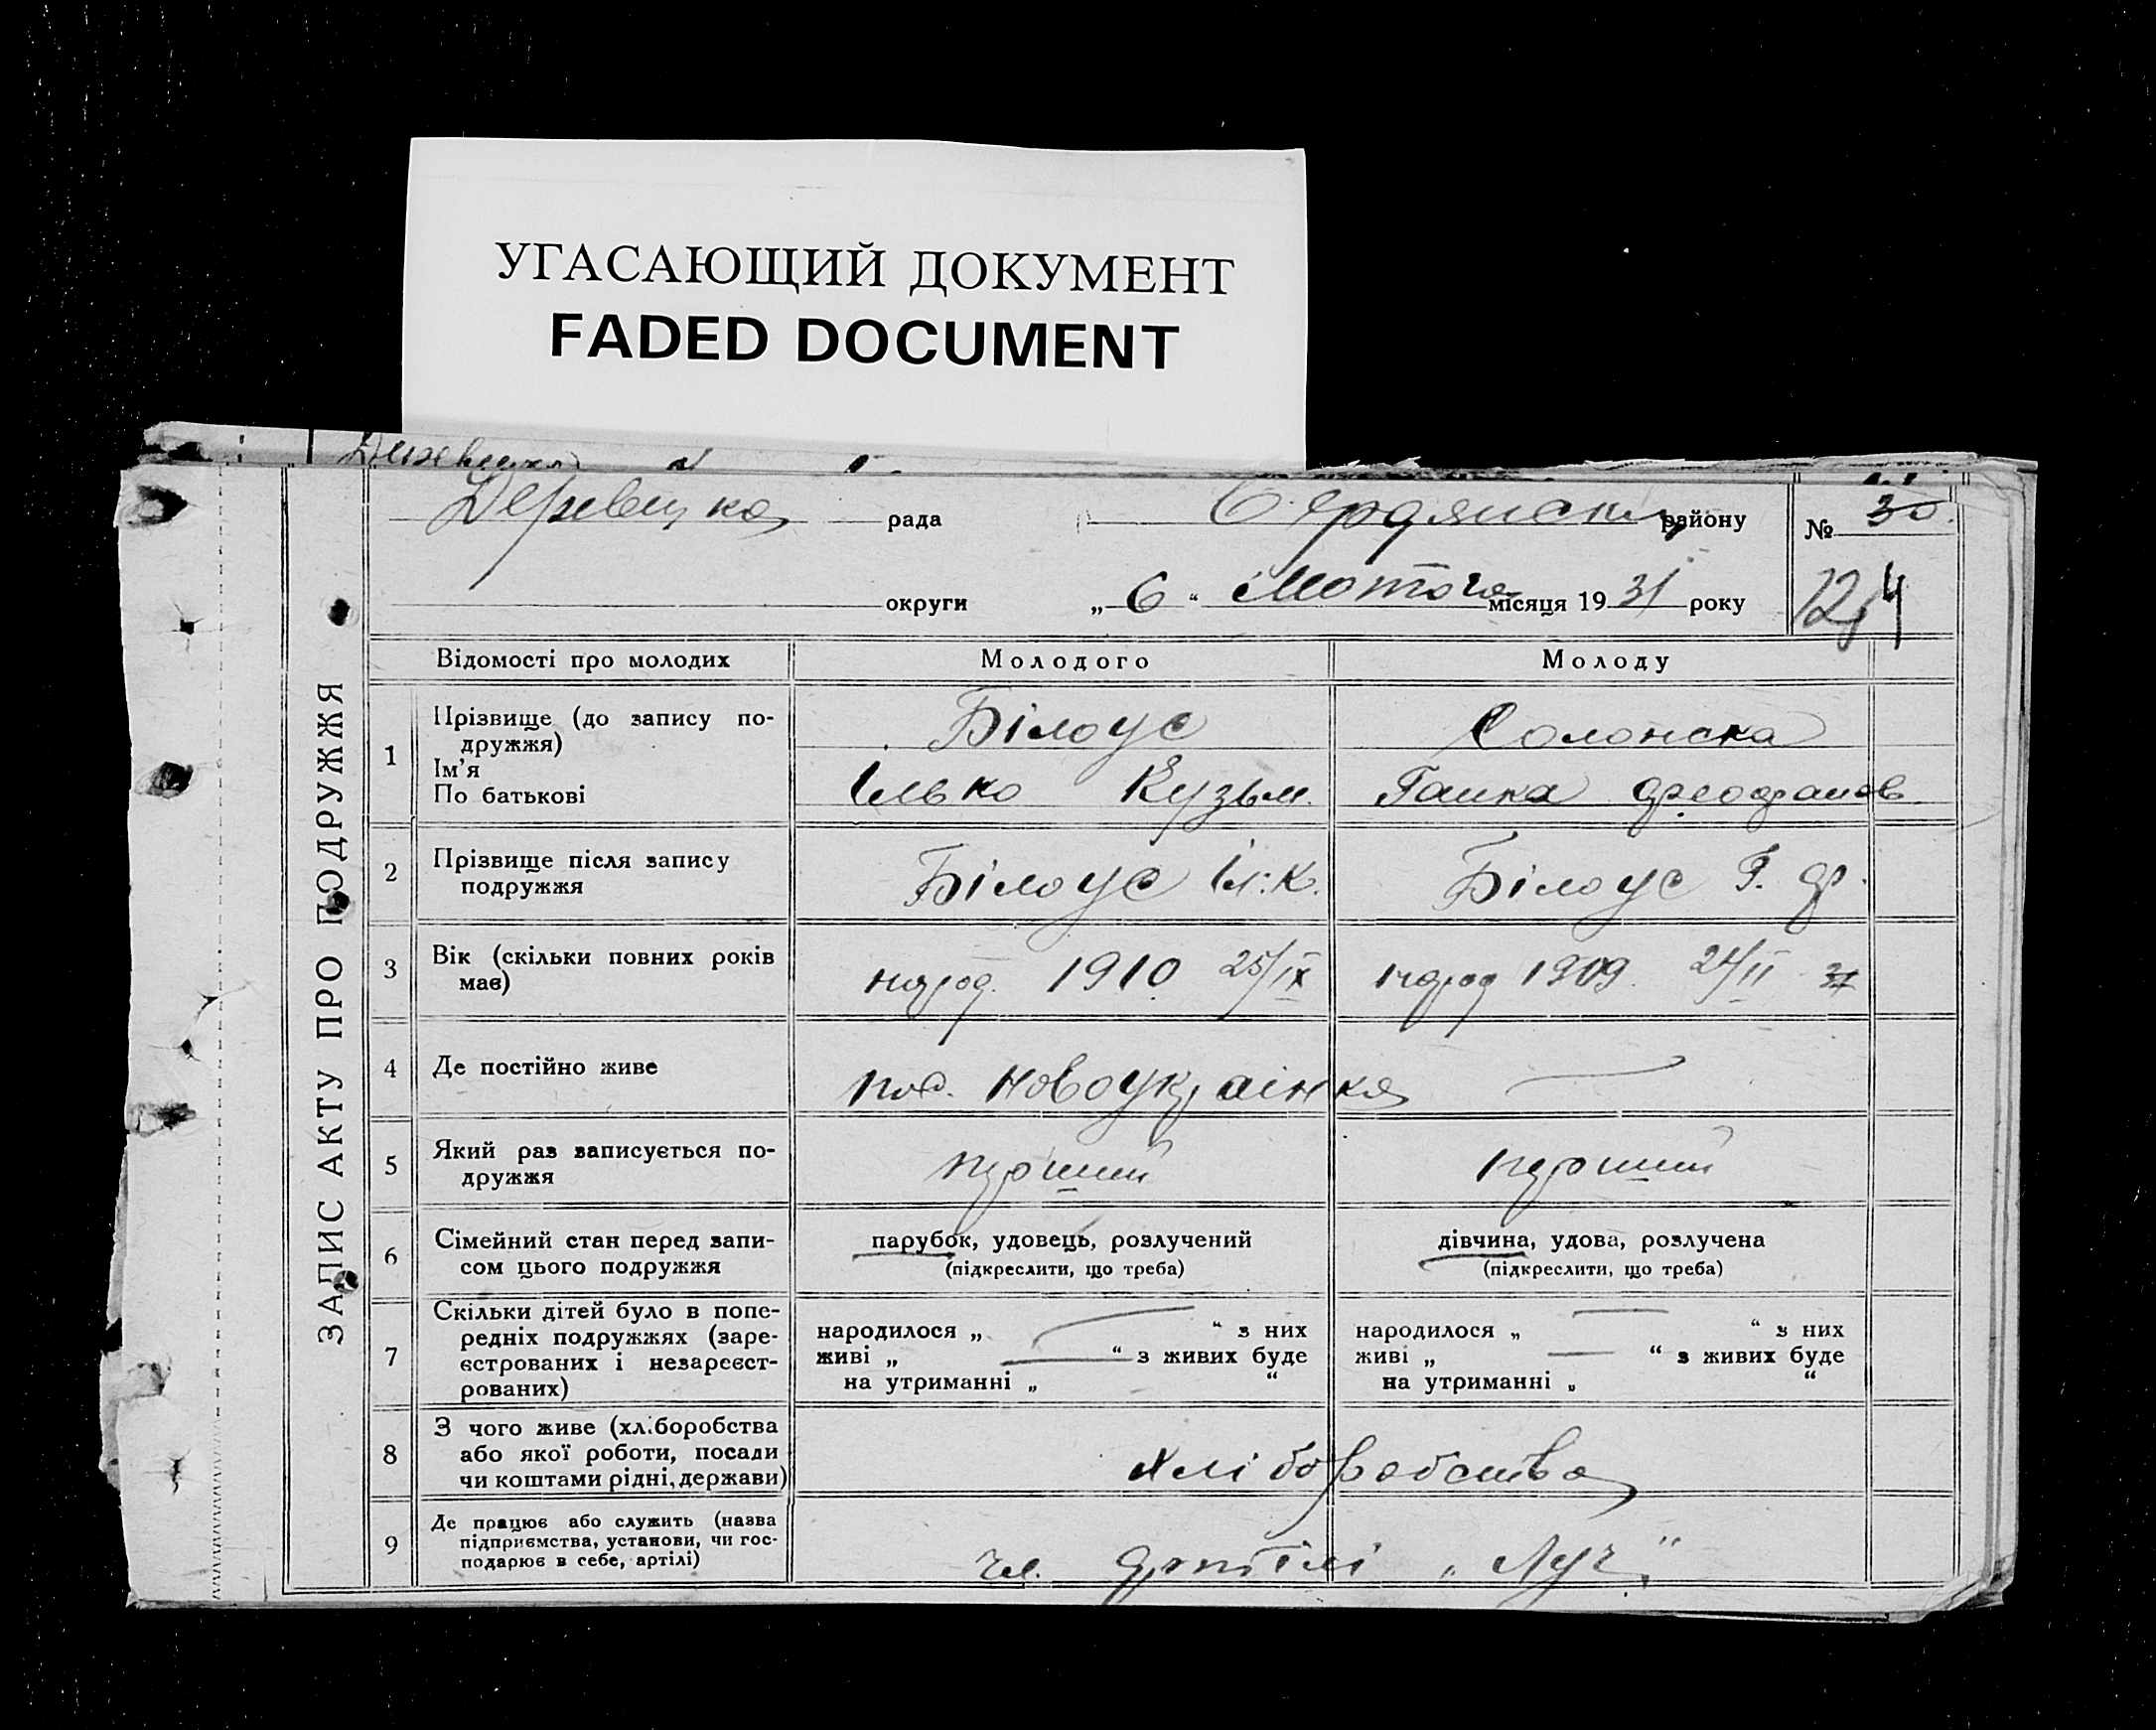 УГАСАЮЩИЙ ДОКУМЕНТ
FADED DOCUMENT
ЗАПИС АКТУ ПРО ПОДРУЖЖЯ
рада Бердянськ району № 30.
округи „ 6 “ Лютого місяця 19 31 року 124
Відомості про молодих Молодого Молоду
1 Прізвище (до запису по-
дружжя) Білоус Солонска
Ім'я
По батькові Ілько Кузьм. Ганна Феофанов
2 Прізвище після запису
подружжя Білоус Іл: К. Білоус Г. Ф.
3 Вік (скільки повних років
має) народ. 1910 25/IX народ 1909. 24/II
4 Де постійно живе пос. Новоукраінка —
5 Який раз записується по-
дружжя перший перший
6 Сімейний стан перед запи-
сом цього подружжя парубок, удовець, розлучений дівчина, удова, розлучена
(підкреслити, що треба) (підкреслити, що треба)
7 Скільки дітей було в попе-
редніх подружжях (заре-
єстрованих і незареєст-
рованих) народилося „ — “ з них народилося „ — “ з них
живі „ — “ з живих буде живі „ — “ з живих буде
на утриманні „ “ на утриманні „ “
8 З чого живе (хліборобства
або якої роботи, посади
чи коштами рідні, держави) хліборобства
9 Де працює або служить (назва
підприємства, установи, чи гос-
подарює в себе, артілі) чл. артілі „Луч“